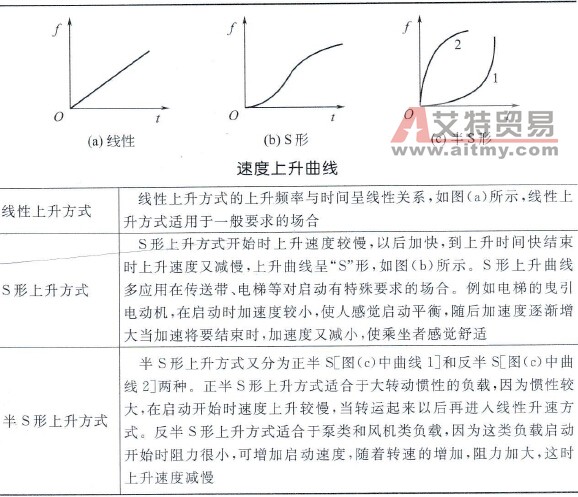 f
f
f
2
1
O
t
O
t
O
(a) 线性
(b) S形
(c) 半S形
艾特贸易
www.aitmy.com
速度上升曲线
线性上升方式
线性上升方式的上升频率与时间呈线性关系,如图(a)所示,线性上
升方式适用于一般要求的场合
S形上升方式
S形上升方式开始时上升速度较慢,以后加快,到上升时间快结束
时上升速度又减慢,上升曲线呈“S”形,如图(b)所示。S形上升曲线
多应用在传送带、电梯等对启动有特殊要求的场合。例如电梯的曳引
电动机,在启动时加速度较小,使人感觉启动平衡,随后加速度逐渐增
大当加速将要结束时,加速度又减小,使乘坐者感觉舒适
半S形上升方式
半S形上升方式又分为正半S[图(c)中曲线1]和反半S[图(c)中曲
线2]两种。正半S形上升方式适合于大转动惯性的负载,因为惯性较
大,在启动开始时速度上升较慢,当转运起来以后再进入线性升速方
式。反半S形上升方式适合于泵类和风机类负载,因为这类负载启动
开始时阻力很小,可增加启动速度,随着转速的增加,阻力加大,这时
上升速度减慢